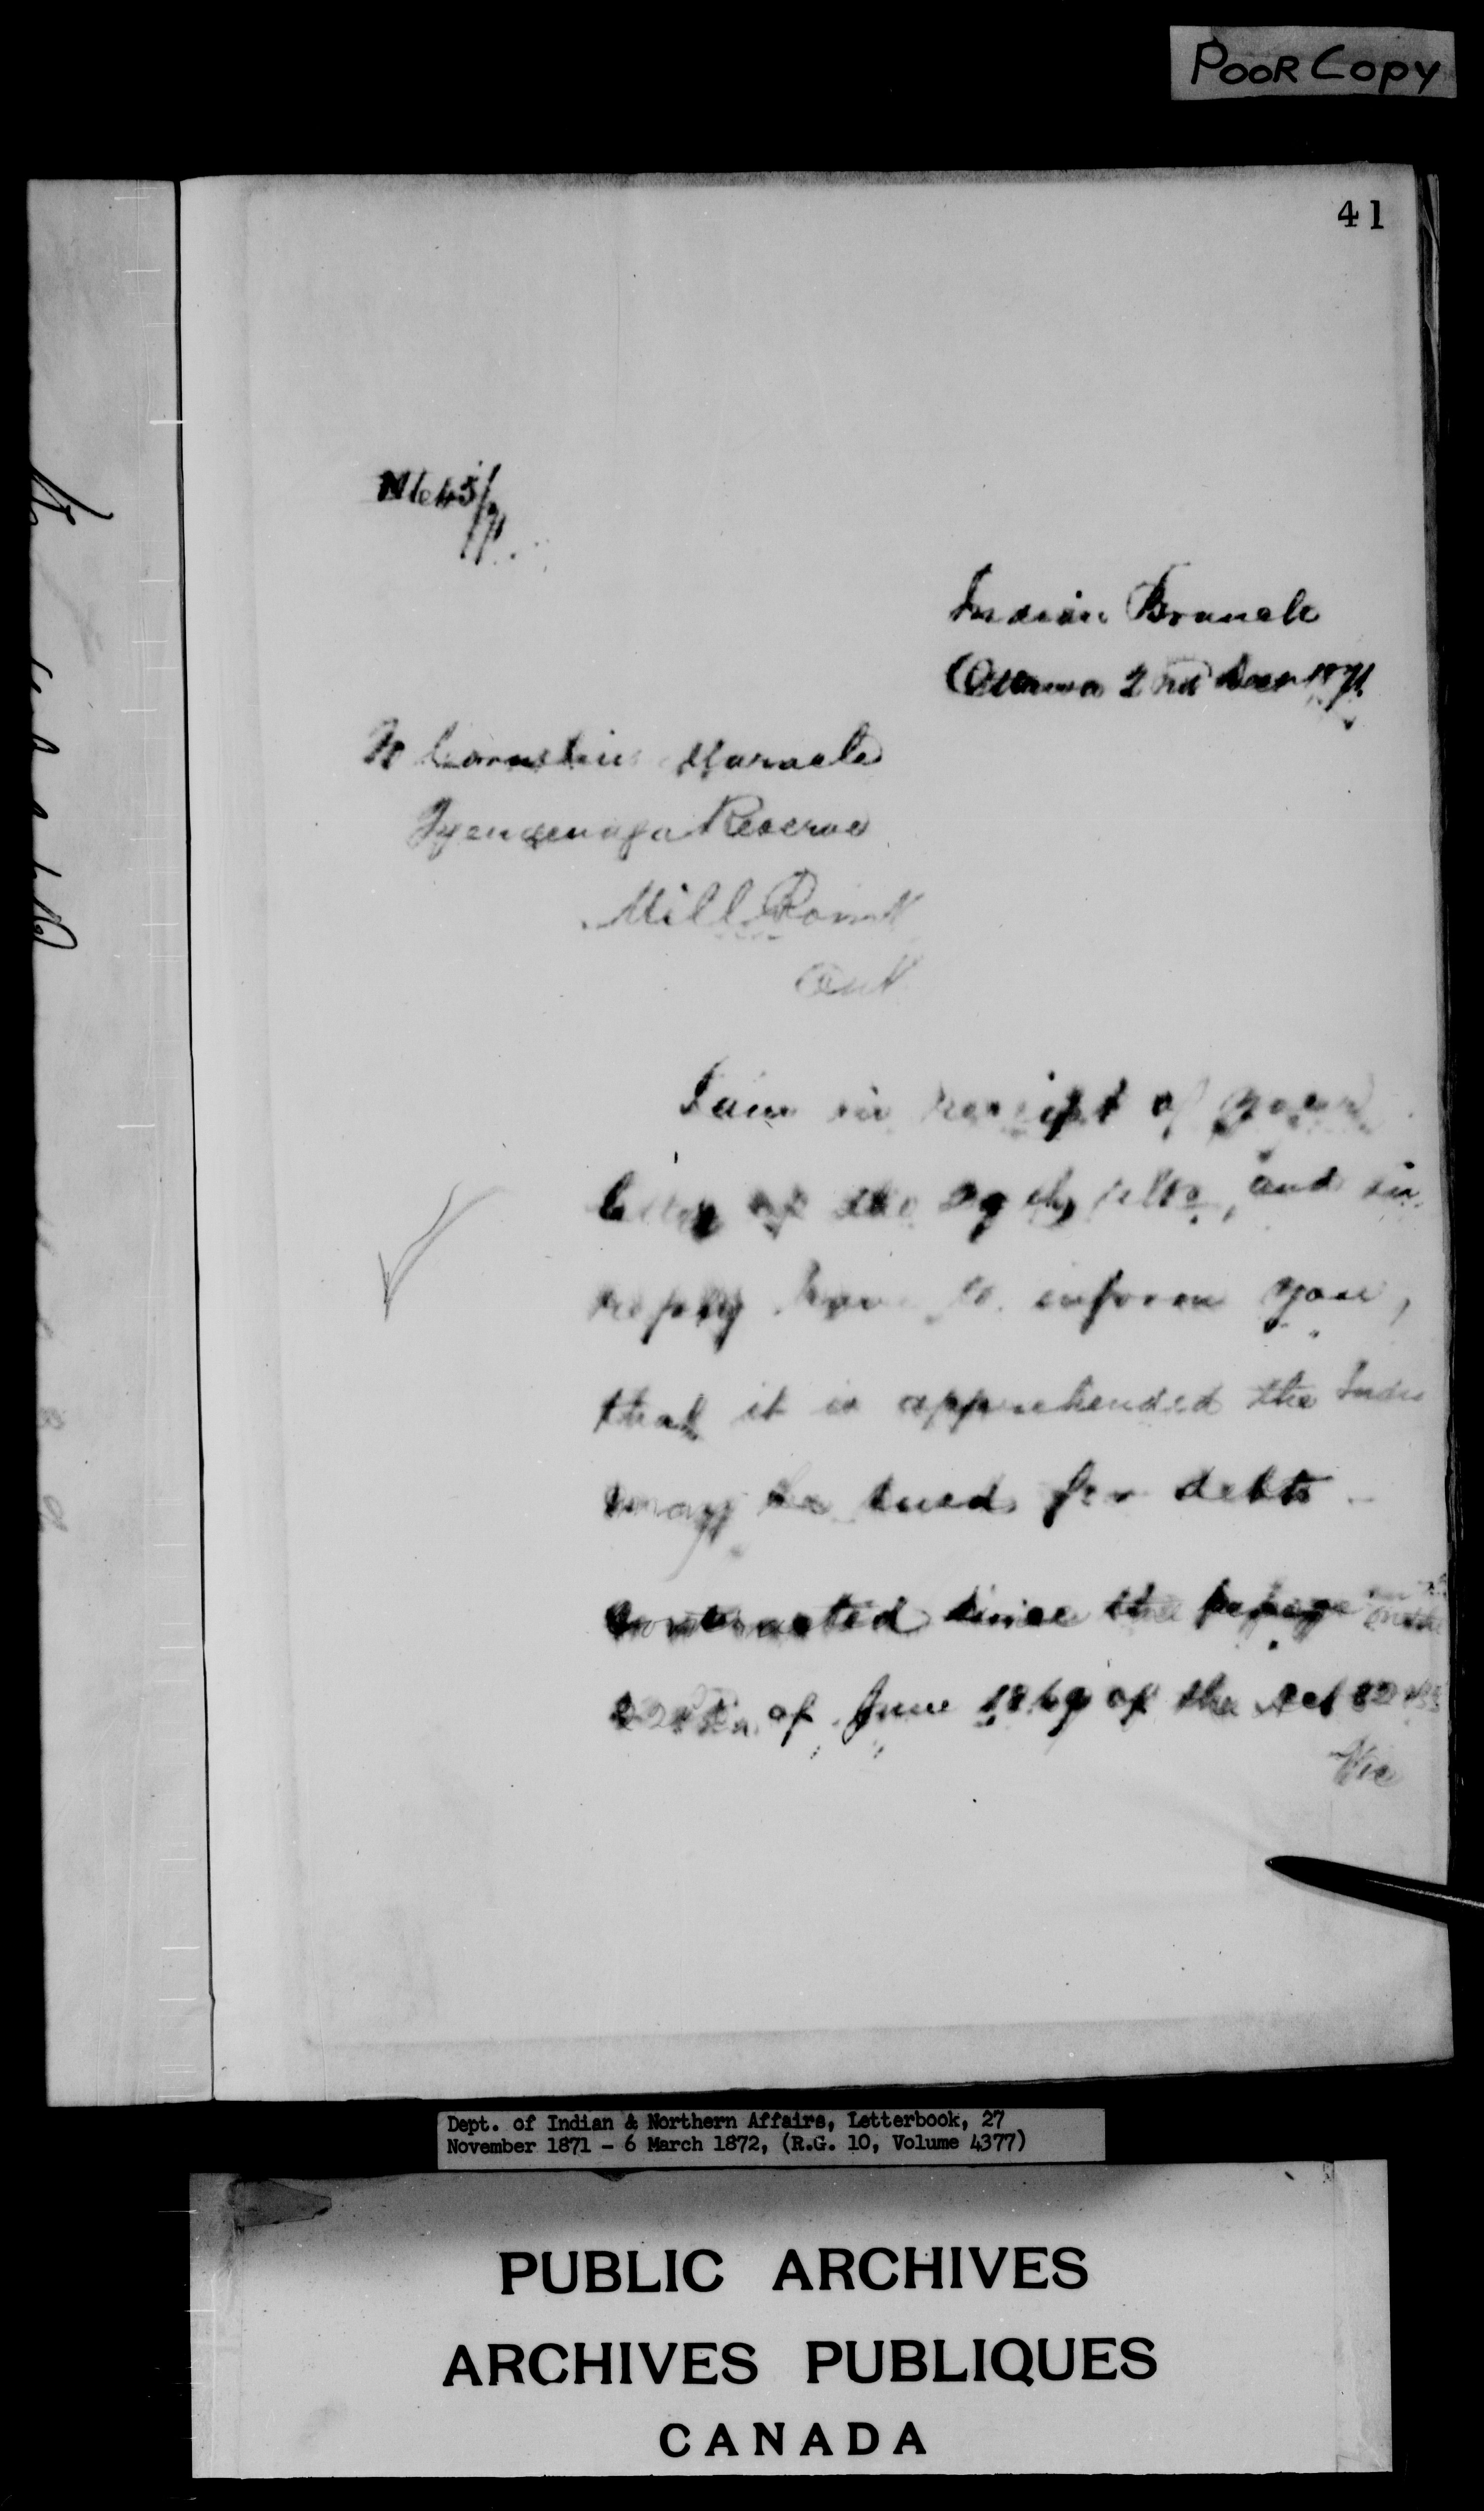 POOR COPY
41
Indian Branch
Ottawa 2nd Decr 1871
Cornelius Maracle
Tyendenaga Reserve
Mill Point
Ont
I am in receipt of your
letter of the 29th ulto, and in
reply have to inform you,
that it is apprehended the
may be sued for debts
contracted since the
of June 1869 of the Act 32
Vic
Dept. of Indian & Northern Affairs, Letterbook, 27
November 1871 - 6 March 1872, (R.G. 10, Volume 4377)
PUBLIC ARCHIVES
ARCHIVES PUBLIQUES
CANADA